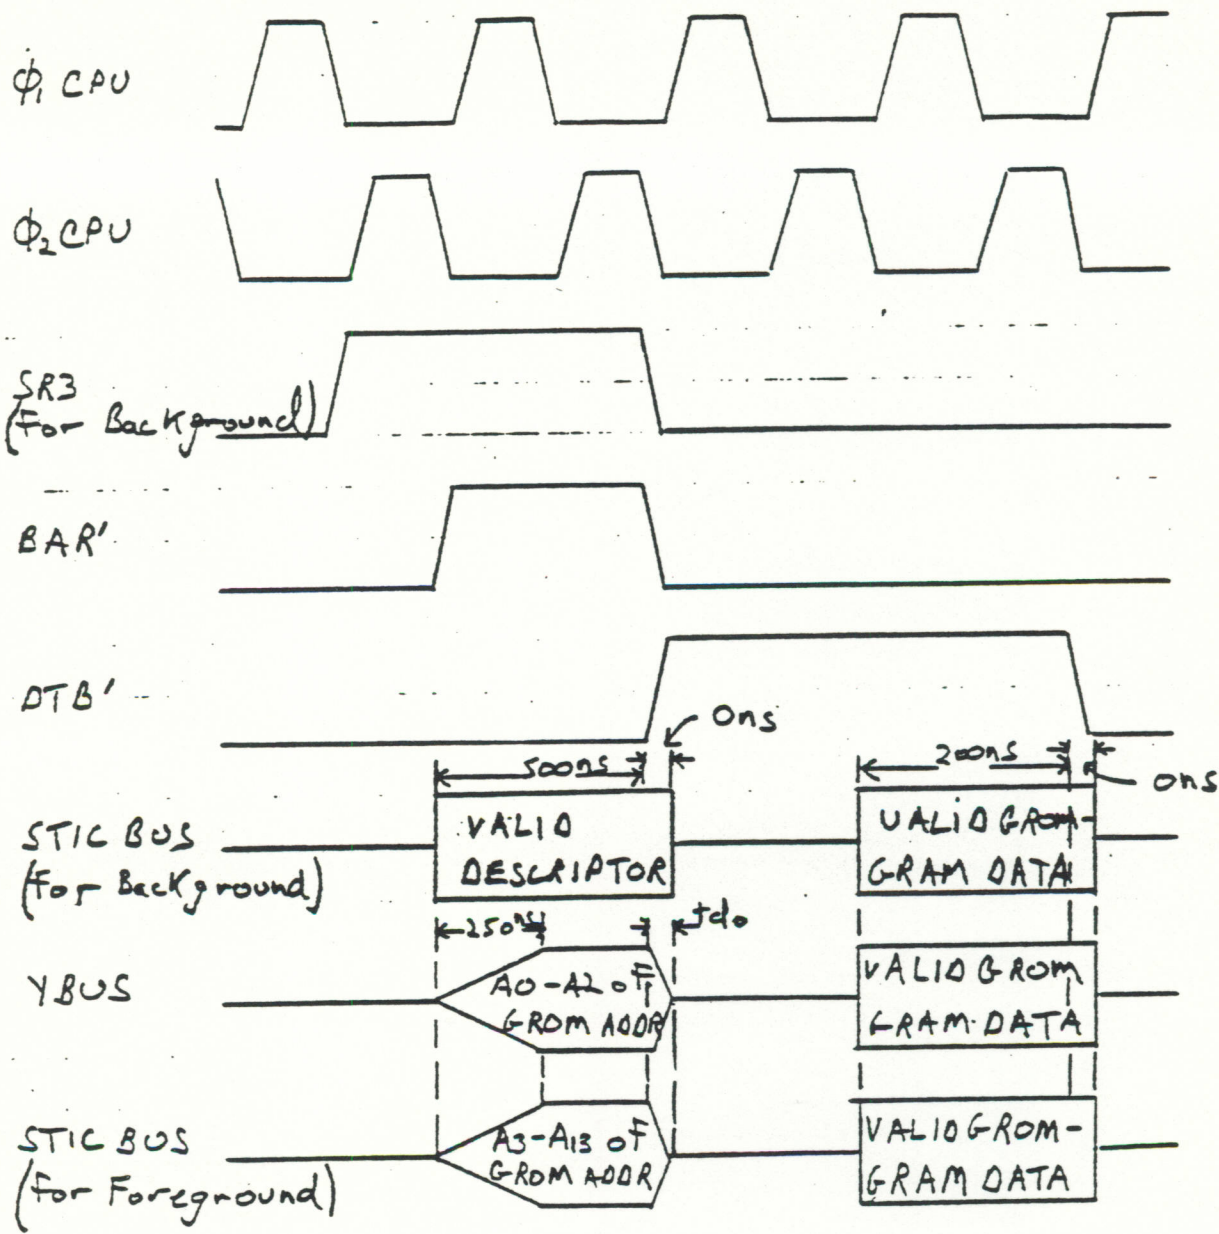 ϕ₁ CPU
ϕ₂ CPU
SR3
(For Background)
BAR'
DTB'
0ns
500ns
200ns
0ns
STIC BUS
(For Background)
VALID
DESCRIPTOR
VALID GROM-
GRAM DATA
250ns
tdo
Y BUS
A0-A2 OF
GROM ADDR
VALID GROM
GRAM DATA
STIC BUS
(For Foreground)
A3-A13 OF
GROM ADDR
VALID GROM-
GRAM DATA